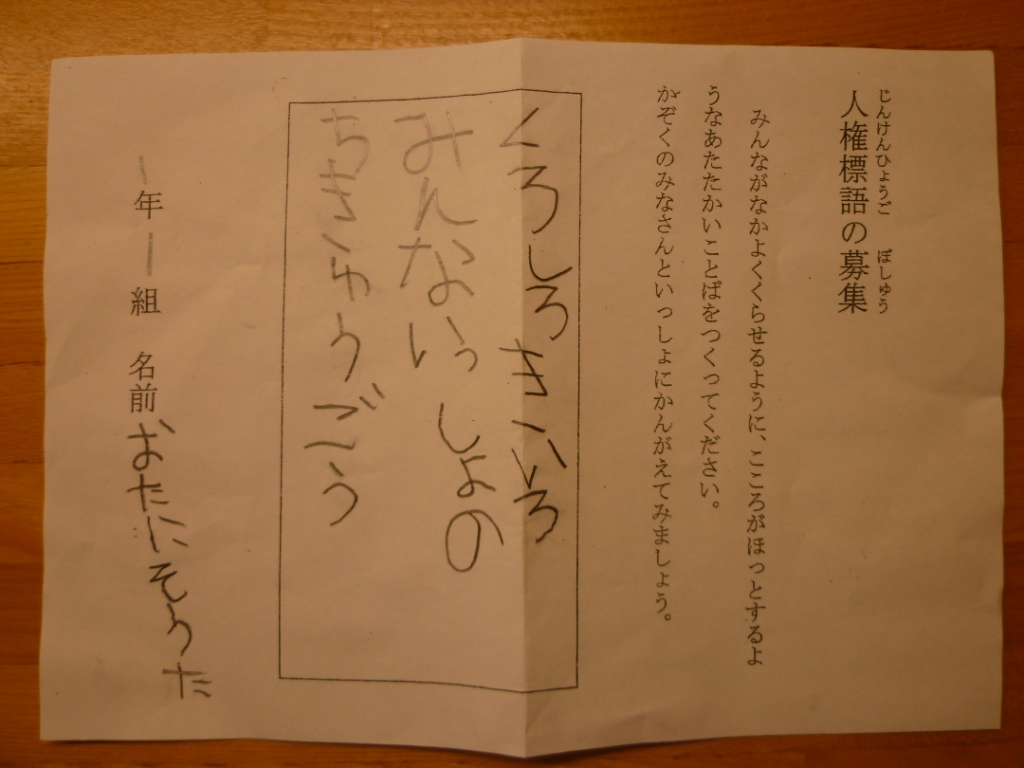 じんけんひょうご ぼしゅう
人権標語の募集
みんながなかよくくらせるように、こころがほっとするよ
うなあたたかいことばをつくってください。
かぞくのみなさんといっしょにかんがえてみましょう。
くろしろきいろ
みんないっしょの
ちきゅうごう
一年一組 名前 おたにそうた